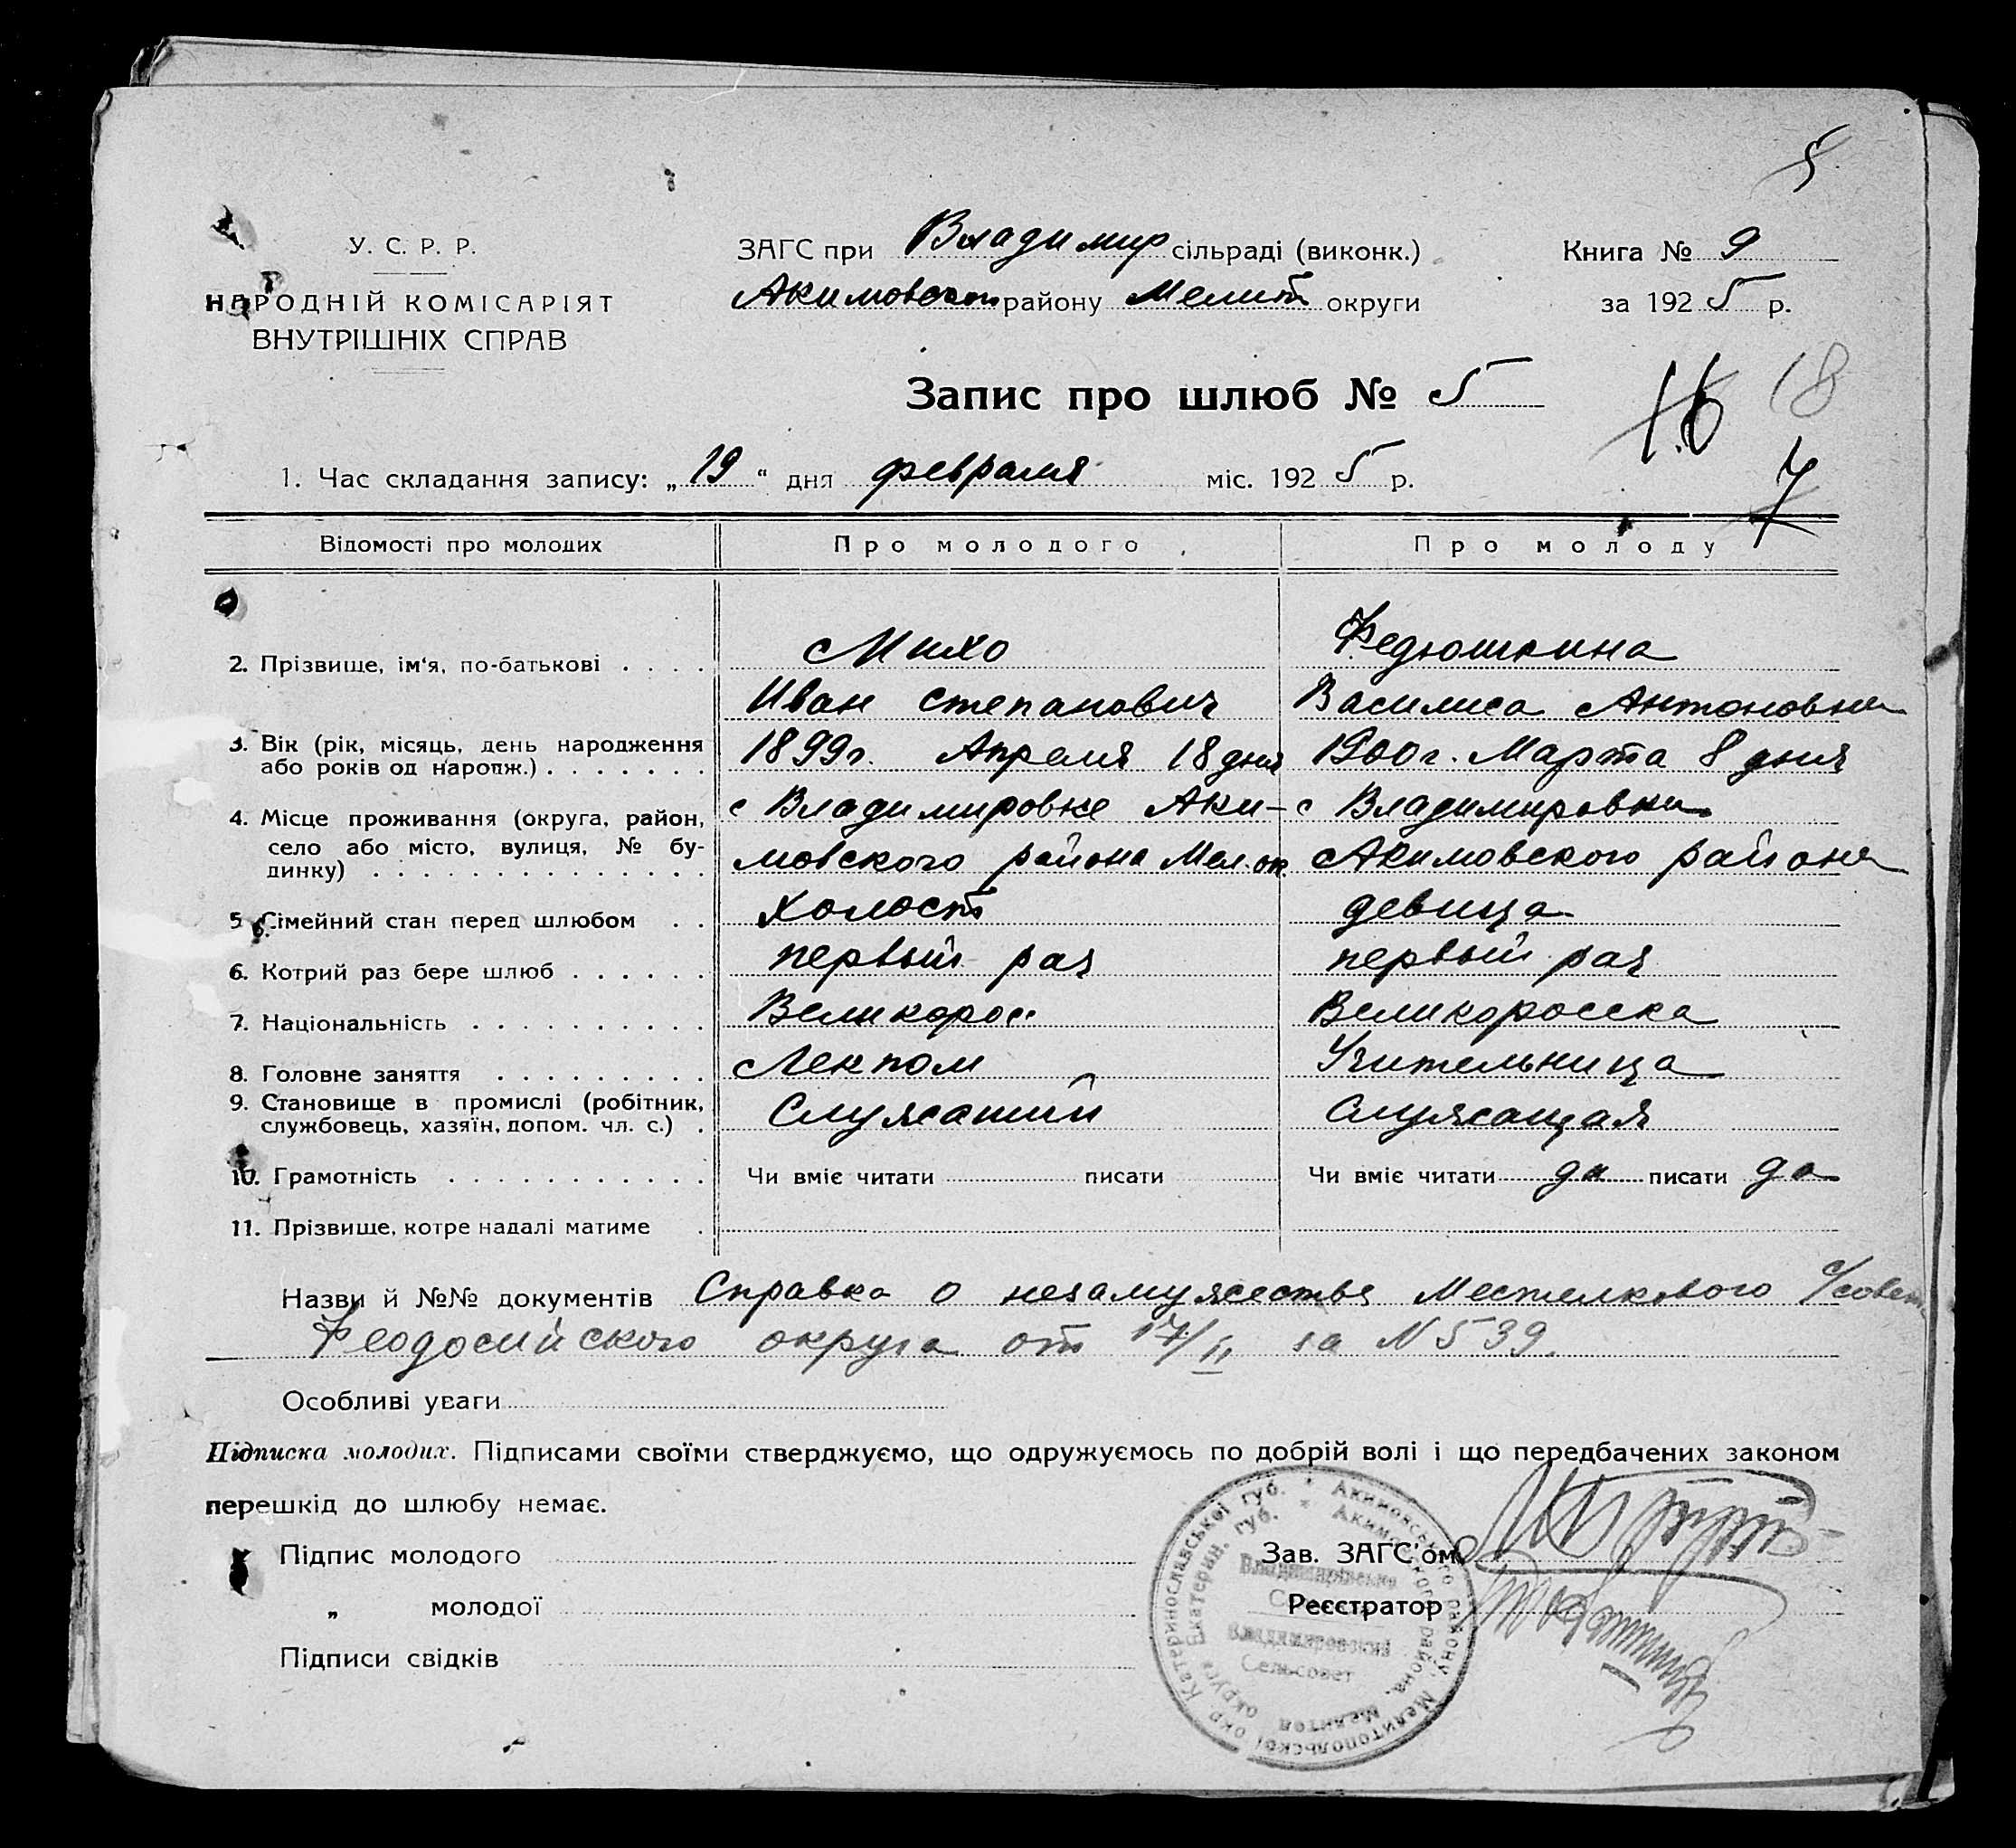 5
У. С. Р. Р.
НАРОДНІЙ КОМІСАРІЯТ
ВНУТРІШНІХ СПРАВ
ЗАГС при Владимир сільраді (виконк.)
Акимовском району Мелит округи
Книга № 9
за 1925 р.
Запис про шлюб № 5
16 18
7
1. Час складання запису: „19“ дня февраля міс. 1925 р.
Відомості про молодих Про молодого Про молоду
2. Прізвище, ім'я, по-батькові . . . . Михо Федюшкина
Иван Степанович Василиса Антоновна
3. Вік (рік, місяць, день народження 1899г. Апреля 18 дня 1900г. Марта 8 дня
або років од народж.) . . . . . . .
4. Місце проживання (округа, район, с Владимировке Аки- с Владимировки
село або місто, вулиця, № бу- мовского района Мел. ок. Акимовского района
динку) . . . . . . . . . . . . . . .
5. Сімейний стан перед шлюбом . . Холост девица
6. Котрий раз бере шлюб . . . . . . первый раз первый раз
7. Національність . . . . . . . . . . Великорос Великоросска
8. Головне заняття . . . . . . . . . Лекпом Учительница
9. Становище в промислі (робітник, Служащий Служащая
службовець, хазяїн, допом. чл. с.) .
10. Грамотність . . . . . . . . . . . Чи вміє читати писати Чи вміє читати да писати да
11. Прізвище, котре надалі матиме .
Назви й №№ документів Справка о незамужестве С/совета
Феодосийского округа от 17/II за N 539.
Особливі уваги
Підписка молодих. Підписами своїми стверджуємо, що одружуємось по добрій волі і що передбачених законом
перешкід до шлюбу немає.
Підпис молодого
„ молодої
Підписи свідків
Зав. ЗАГС'ом
Реєстратор
Катеринославської губ. * Акимовського району, Мелитопольскої окр
Екатерин. губ. * Акимовского района, Мелитоп округа
Владимировский
Сельсовет